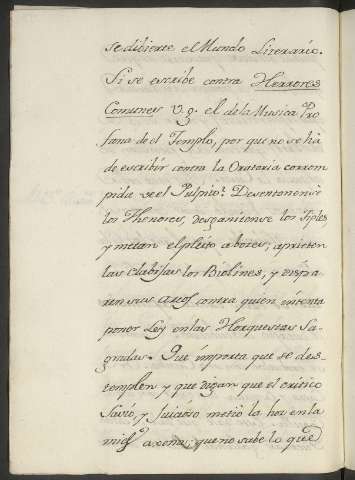 se dibierte el Mundo Literario.
Si se escribe contra Herrores
Comunes V.g. el de la Musica Pro
fana de el Templo, por que no se ha
de escribir contra la Oratoria corrom
pida de el Pulpito? Desentonense
los Thenores, desganitense los Tiples,
y metan el pleito a bozes; aprieten
las clabijas los Biolines, y dispa
ren sus arcos contra quien intenta
poner Ley en las Horquestas Sa
gradas. Que importa que se des
templen y que digan que el critico
Savio, y Juicioso metió la hoz en la
mies axena; que no sabe lo que